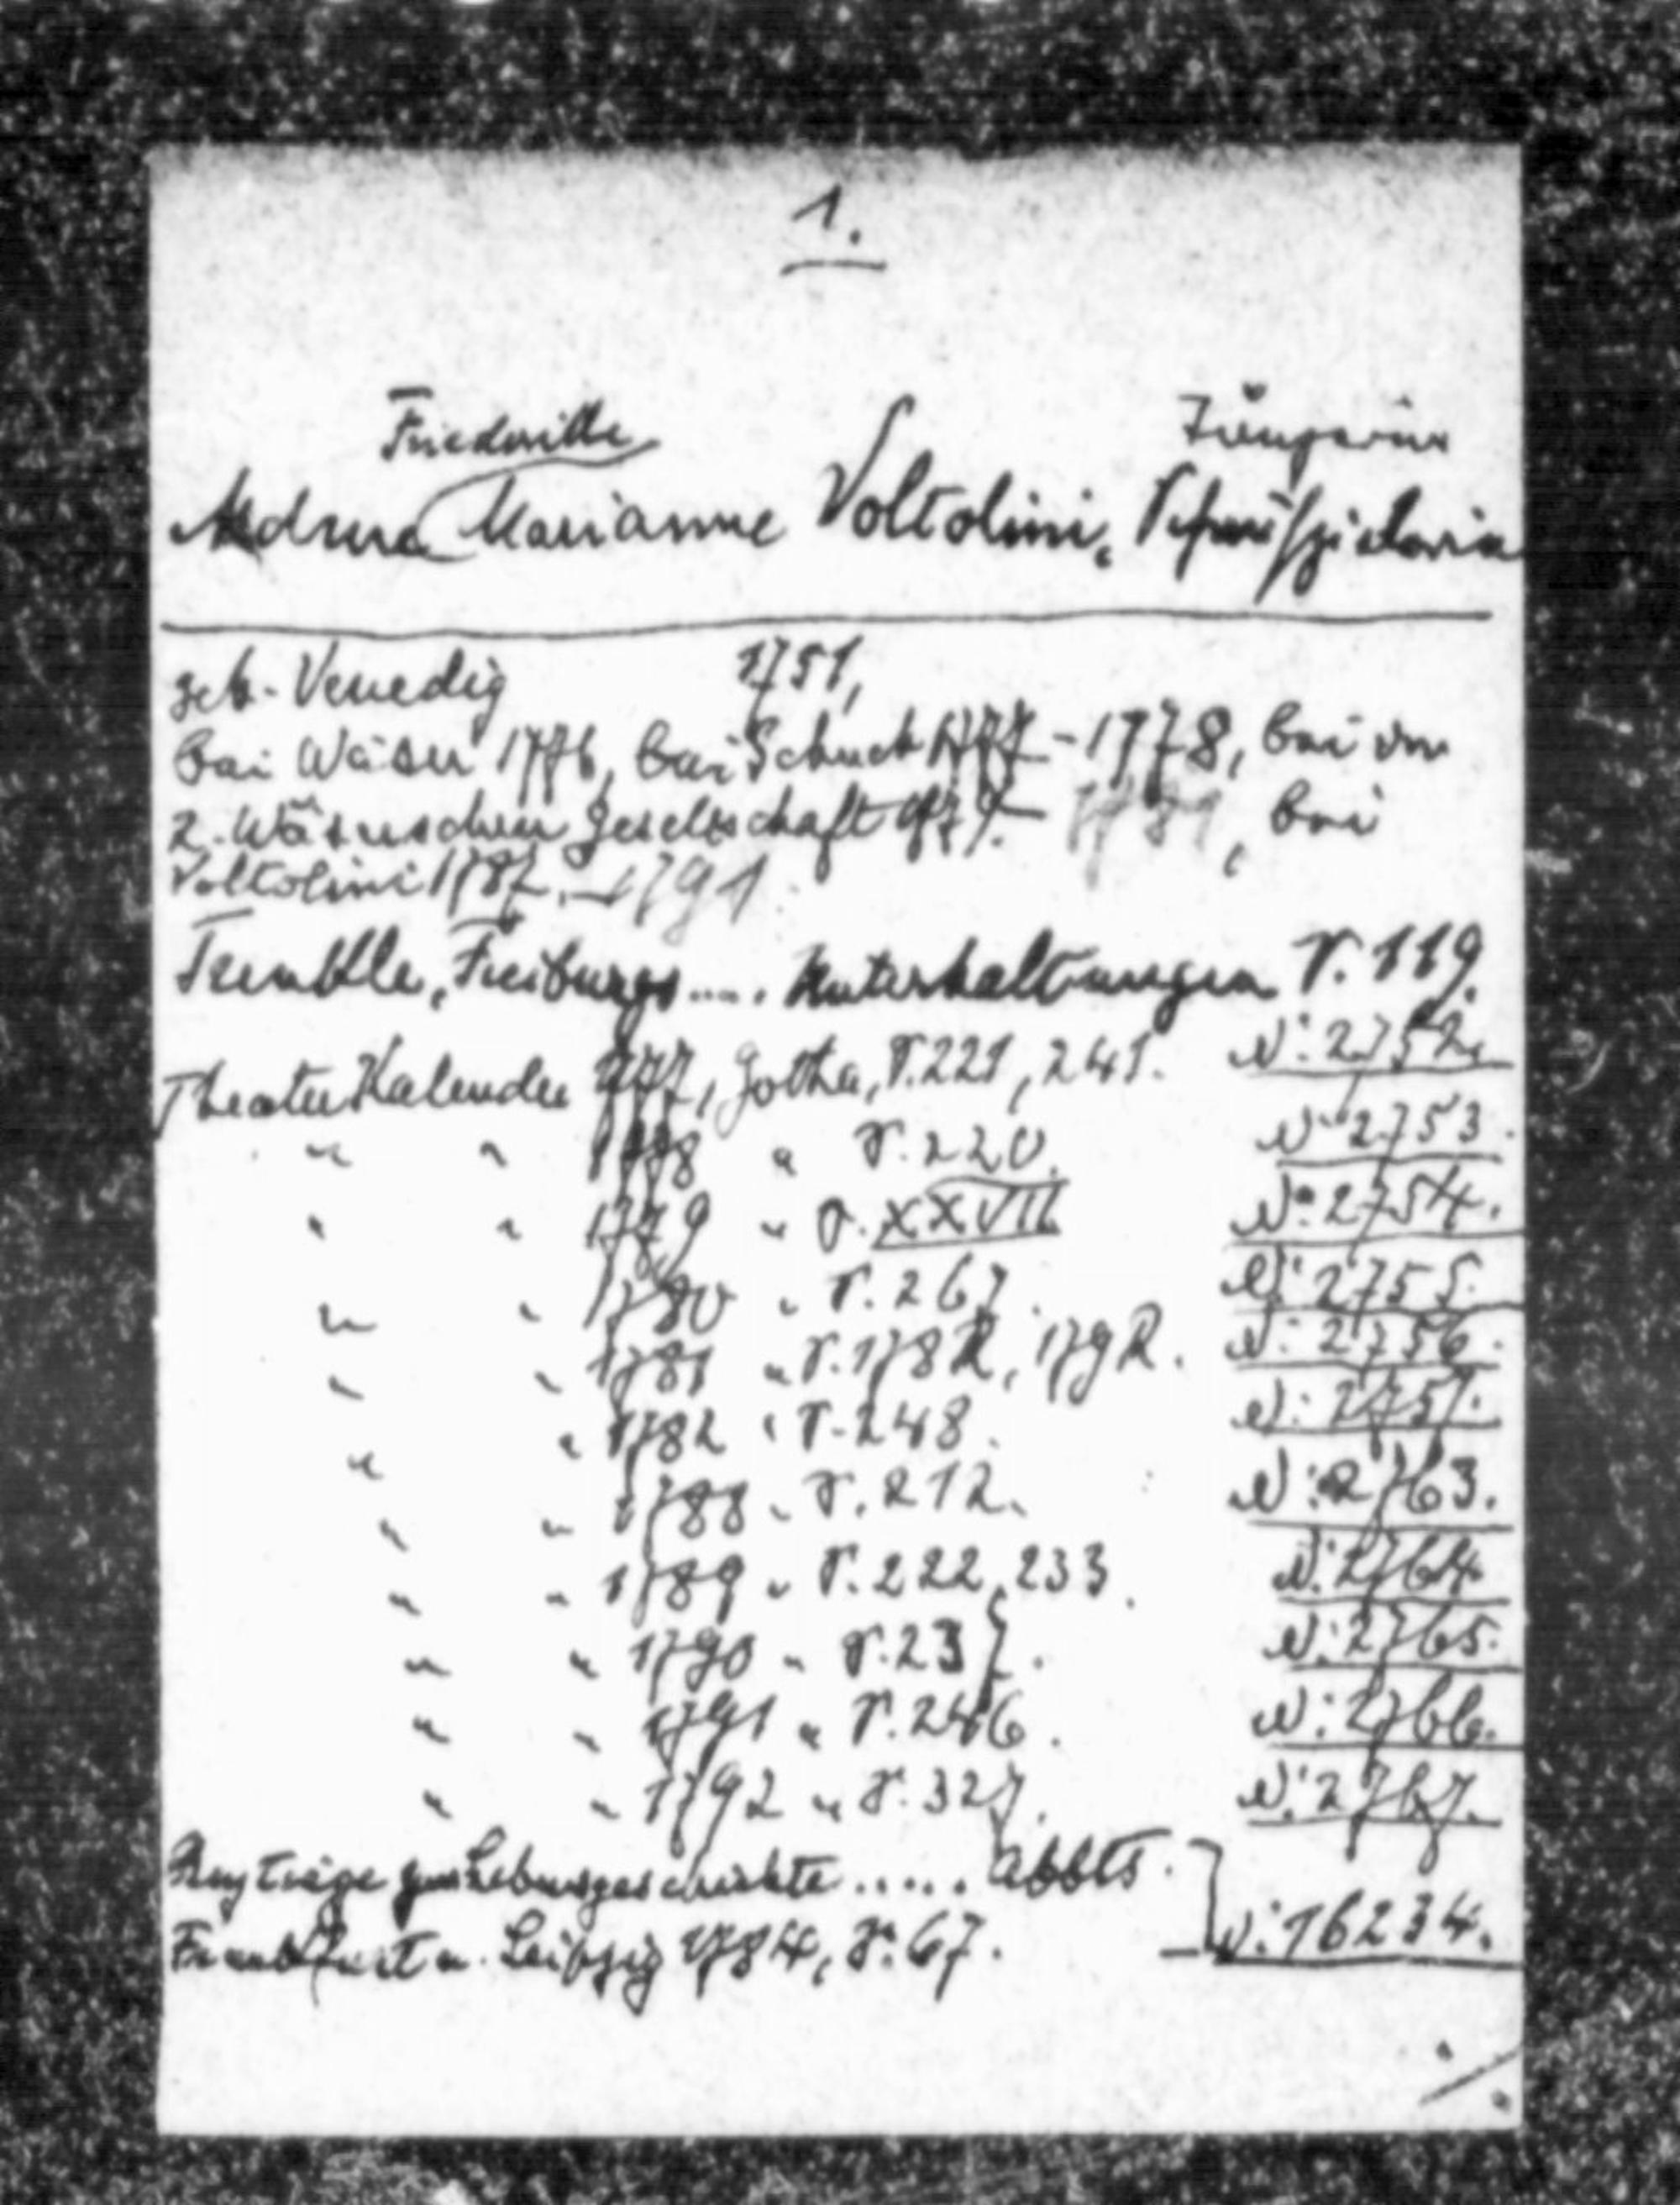 1.
Friederike Sängerin
Mdme Marianne Voltolini, Schauspielerin
geb. Venedig 1751,
bei Wäser 1776, bei Schuch 1777-1778, bei der
2. Wäserschen Gesellschaft 1779-1781, bei
Voltolini 1787-1791.
Trenkle, Freiburgs .... Unterhaltungen S. 119.
Theater Kalender 1777, Gotha, S. 221, 241. N: 2752.
" " 1778 " S. 220. N: 2753.
" " 1779 " S. XXVII N: 2754.
" " 1780 " S. 267. N: 2755.
" " 1781 " S. 178R, 179R. N: 2756.
" " 1782 " S. 248. N: 2757.
" " 1788 " S. 212. N: 2763.
" " 1789 " S. 222, 233. N: 2764.
" " 1790 " S. 237. N: 2765.
" " 1791 " S. 246. N: 2766.
" " 1792 " S. 327. N: 2767.
Lebensgeschichte ..... Abbts.
Frankfurt u. Leipzig 1784, S. 67. N: 16234.
./.